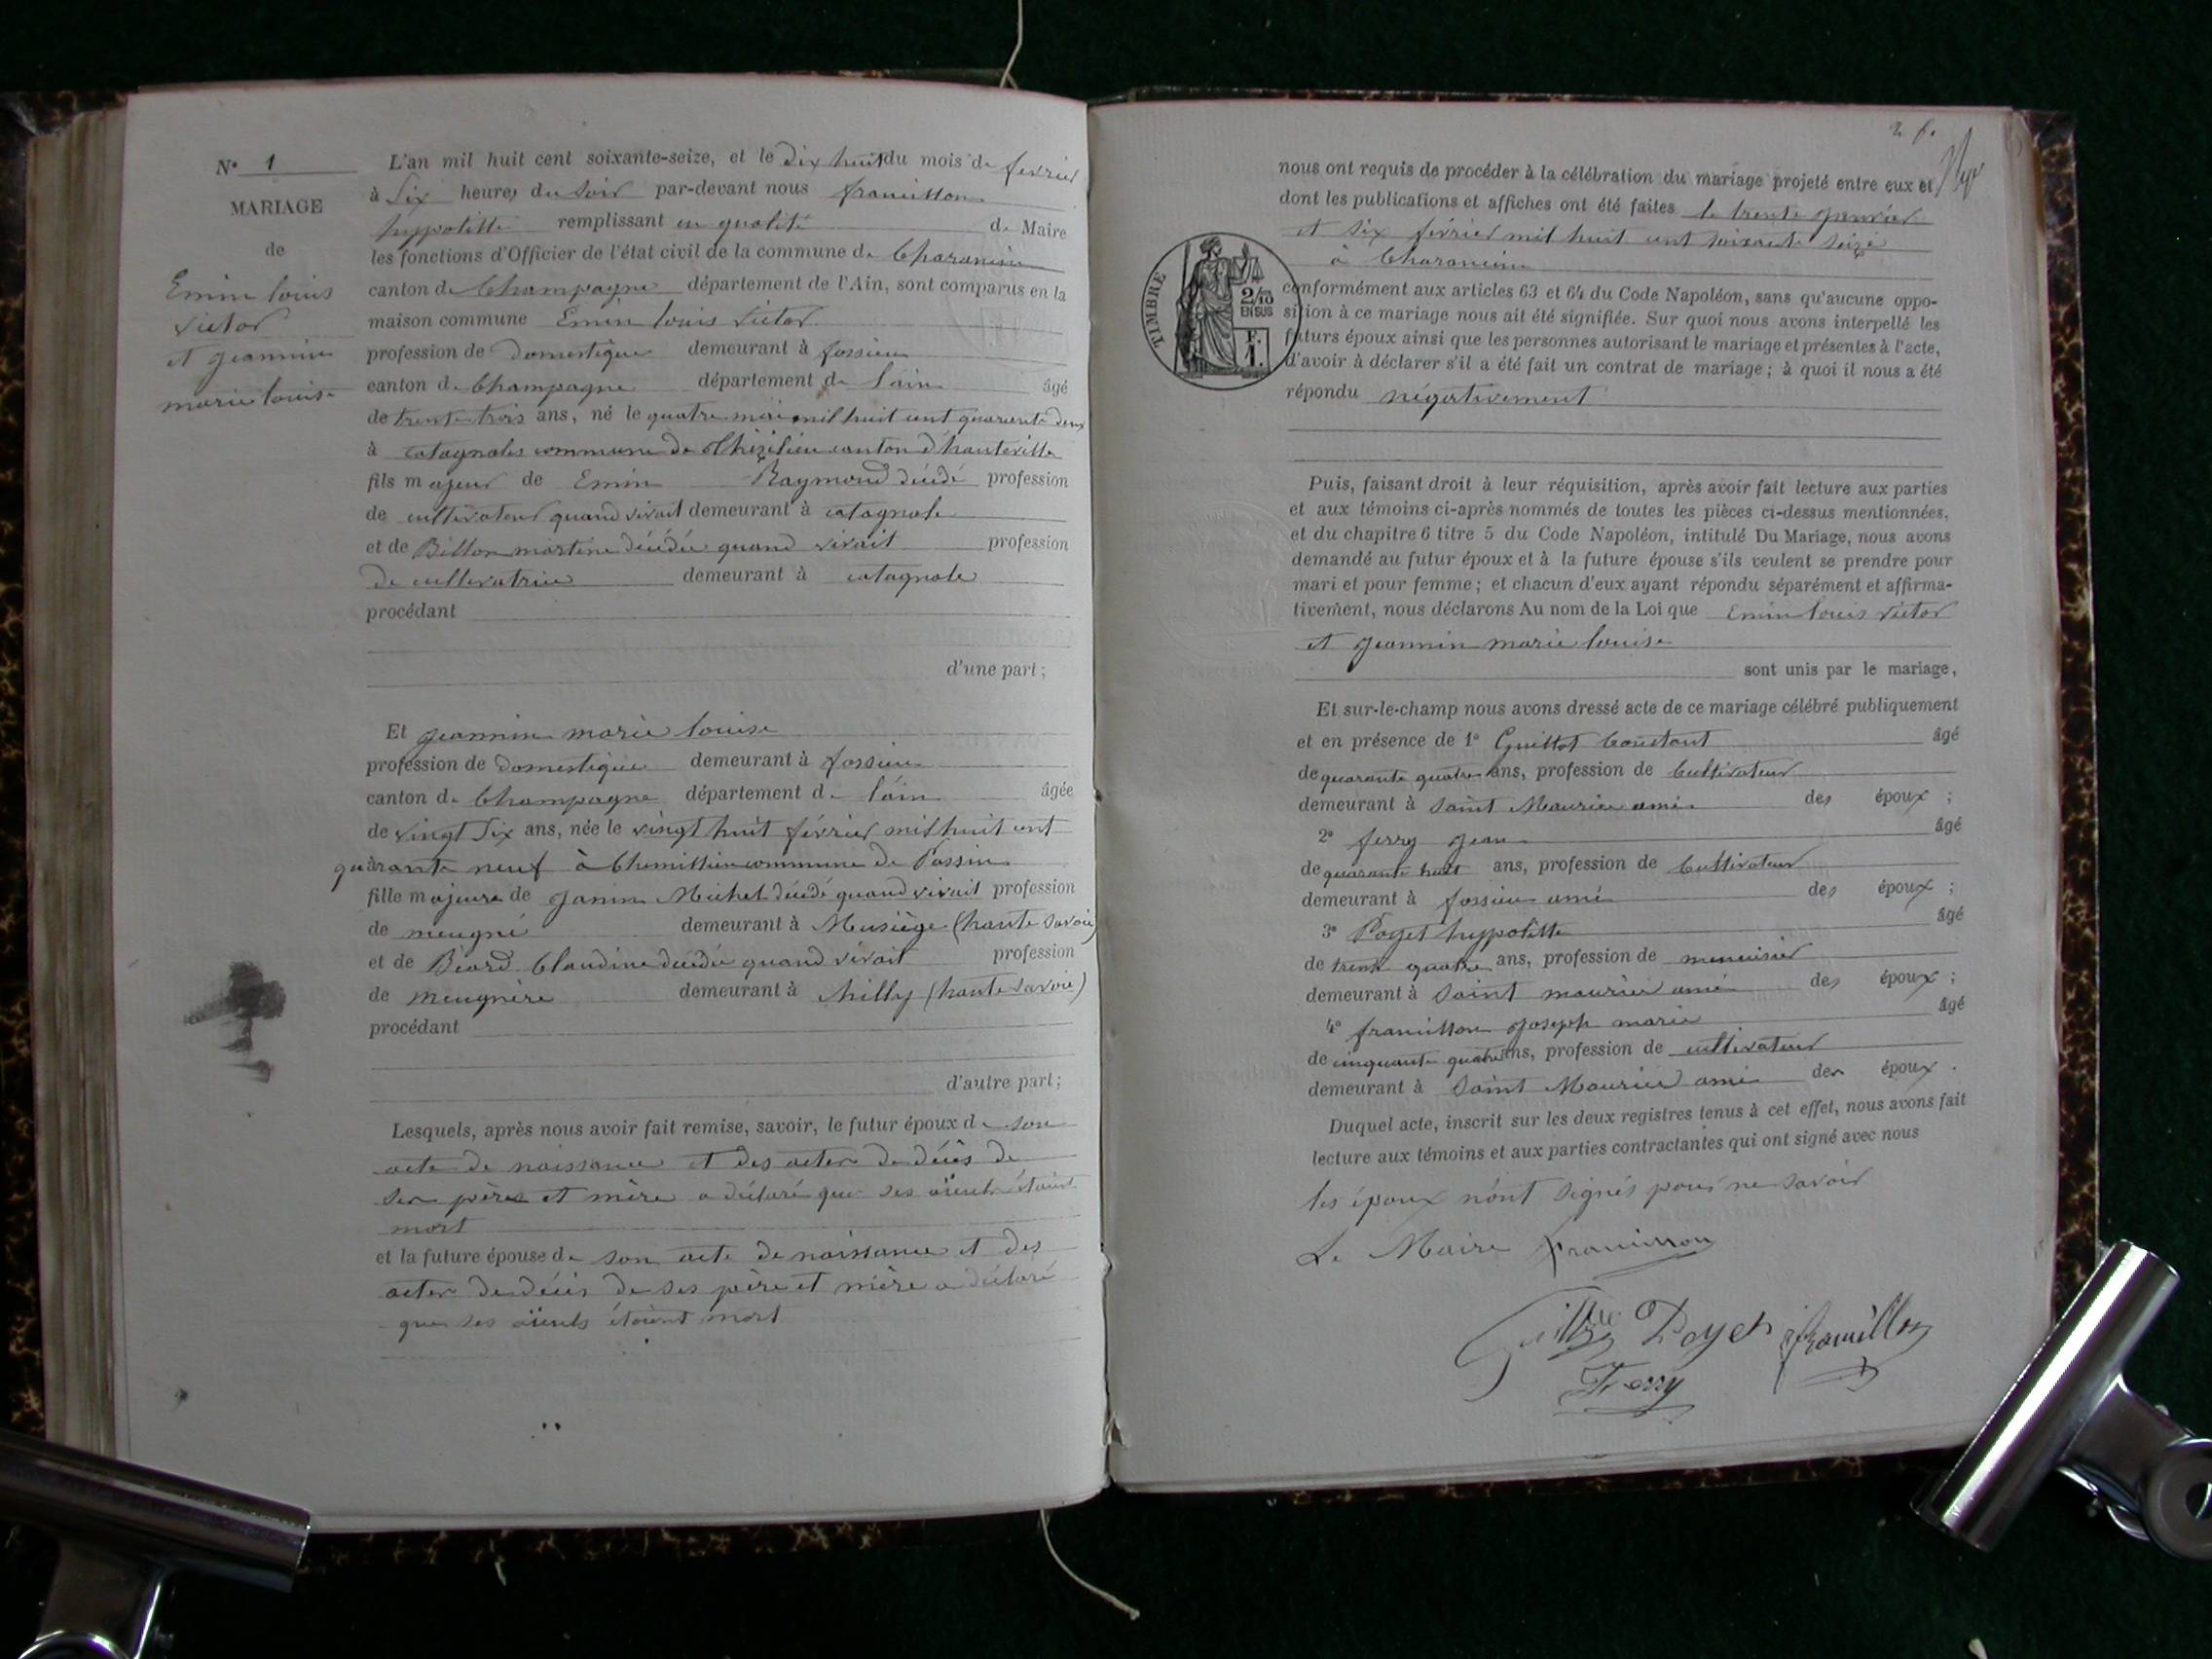 N° 1
MARIAGE
de
Emin louis
victor
et jeannin
marie louise
L'an mil huit cent soixante-seize, et le dix huit du mois de fevrier
à Six heures du soir par-devant nous francillon
hyppolitte remplissant en qualité de Maire
les fonctions d'Officier de l'état civil de la commune de Charancin
canton de Champagne département de l'Ain, sont comparus en la
maison commune Emin louis victor
profession de Domestique demeurant à fossieu
canton de Champagne département de l'ain âgé
de trente trois ans, né le quatre mai mil huit cent quarante deux
à catagnole commune de thézilieu canton d'hauteville
fils majeur de Emin Raymond décédé profession
de cultivateur quand vivait demeurant à catagnole
et de Billon martine décédée quand vivait profession
de cultivatrice demeurant à catagnole
procédant
d'une part;
Et jeannin marie louise
profession de domestique demeurant à fossieu
canton de Champagne département de l'ain âgée
de vingt six ans, née le vingt huit février mil huit cent
quarante neuf à Chemillieu commune de Passin
fille majeure de Janin Michel décédé quand vivait profession
de meugné demeurant à Musiège (haute savoie)
et de Béard Claudine décédée quand vivait profession
de meugnère demeurant à chilly (haute savoie)
procédant
d'autre part;
Lesquels, après nous avoir fait remise, savoir, le futur époux de son
acte de naissance et des actes de décès de
ses pères et mère a déclaré que ses aïeuls étaient
mort
et la future épouse de son acte de naissance et des
actes de décès de ses père et mère a déclaré
que ses aïeuls étaient mort
2 f.
nous ont requis de procéder à la célébration du mariage projeté entre eux et
dont les publications et affiches ont été faites le trente janvier
et six février mil huit cent soixante seize
à Charancin
TIMBRE
2/10
EN SUS
F.
1.
conformément aux articles 63 et 64 du Code Napoléon, sans qu'aucune oppo-
sition à ce mariage nous ait été signifiée. Sur quoi nous avons interpellé les
futurs époux ainsi que les personnes autorisant le mariage et présentes à l'acte,
d'avoir à déclarer s'il a été fait un contrat de mariage; à quoi il nous a été
répondu négativement
Puis, faisant droit à leur réquisition, après avoir fait lecture aux parties
et aux témoins ci-après nommés de toutes les pièces ci-dessus mentionnées,
et du chapitre 6 titre 5 du Code Napoléon, intitulé Du Mariage, nous avons
demandé au futur époux et à la future épouse s'ils veulent se prendre pour
mari et pour femme; et chacun d'eux ayant répondu séparément et affirma-
tivement, nous déclarons Au nom de la Loi que Emin louis victor
et jeannin marie louise
sont unis par le mariage,
Et sur-le-champ nous avons dressé acte de ce mariage célébré publiquement
et en présence de 1° Guillot Constant âgé
de quarante quatre ans, profession de Cultivateur
demeurant à saint Maurice ami des époux;
2° ferry jean âgé
de quarante huit ans, profession de Cultivateur
demeurant à fossieu ami des époux;
3° Poget hyppolitte âgé
de trente quatre ans, profession de menuisier
demeurant à Saint maurice ami des époux;
4° francillon joseph marie âgé
de cinquante quatre ans, profession de cultivateur
demeurant à Saint Maurice ami des époux.
Duquel acte, inscrit sur les deux registres tenus à cet effet, nous avons fait
lecture aux témoins et aux parties contractantes qui ont signé avec nous
les époux n'ont signés pour ne savoir
Le Maire francillon
Poget francillon
Ferry